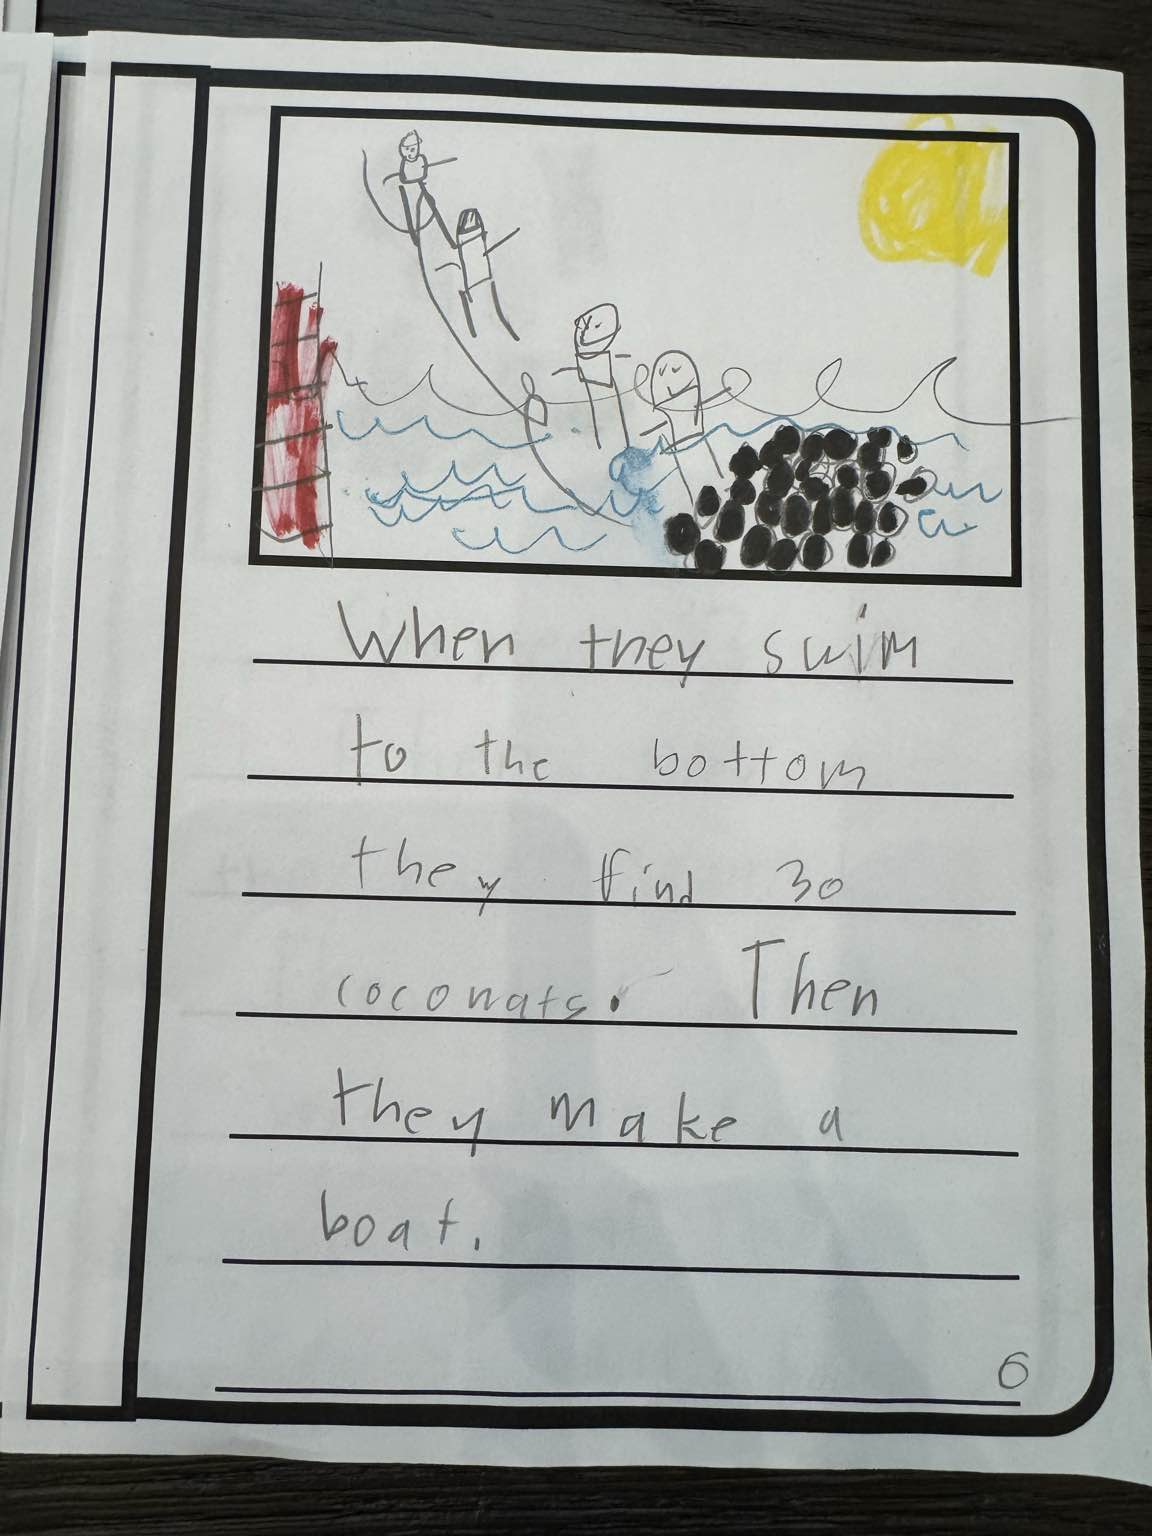 When they swim
to the bottom
they find 30
coconats. Then
they make a
boat.
6